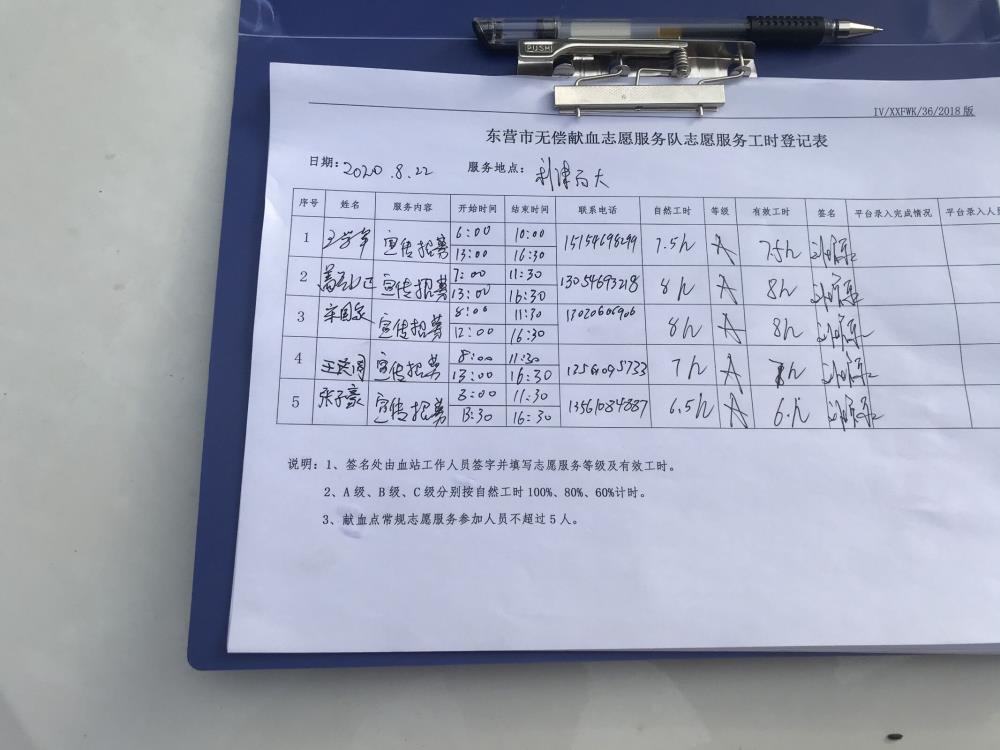 PUSH
IV/XXFWK/36/2018版
东营市无偿献血志愿服务队志愿服务工时登记表
日期：2020.8.22 服务地点：利津百大
序号 姓名 服务内容 开始时间 结束时间 联系电话 自然工时 等级 有效工时 签名 平台录入完成情况 平台录入人员
1 宣传招募 6:00 10:00 15154698299 7.5h A 7.5h
13:00 16:30
2 宣传招募 7:00 11:30 13054693218 8h A 8h
13:00 16:30
3 宣传招募 8:00 11:30 13020606906 8h A 8h
12:00 16:30
4 宣传招募 8:00 11:30 7h A h
13:00 16:30
5 张子豪 宣传招募 8:00 11:30 13561084887 6.5h A 6.h
13:30 16:30
说明：1、签名处由血站工作人员签字并填写志愿服务等级及有效工时。
2、A级、B级、C级分别按自然工时100%、80%、60%计时。
3、献血点常规志愿服务参加人员不超过5人。